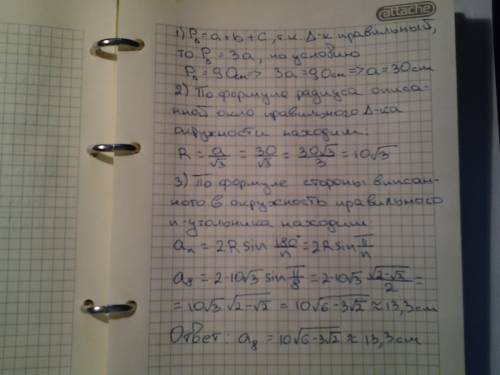 attache
1) P₃=a+b+c, т.к. Δ-к правильный,
то P₃ = 3a, по условию
P₃ = 90см => 3a = 90см => a = 30см
2) По формуле радиуса описа-
нной около правильного Δ-ка
окружности находим:
R = a/√3 = 30/√3 = 30√3/3 = 10√3
3) По формуле стороны вписан-
ного в окружность правильного
n-угольника находим
aₙ = 2R sin 180°/n = 2R sin π/n
a₈ = 2·10√3 sin π/8 = 2·10√3 √(2-√2)/2 =
= 10√3 √(2-√2) = 10√(6-3√2) ≈ 13,3см
Ответ: a₈ = 10√(6-3√2) ≈ 13,3см